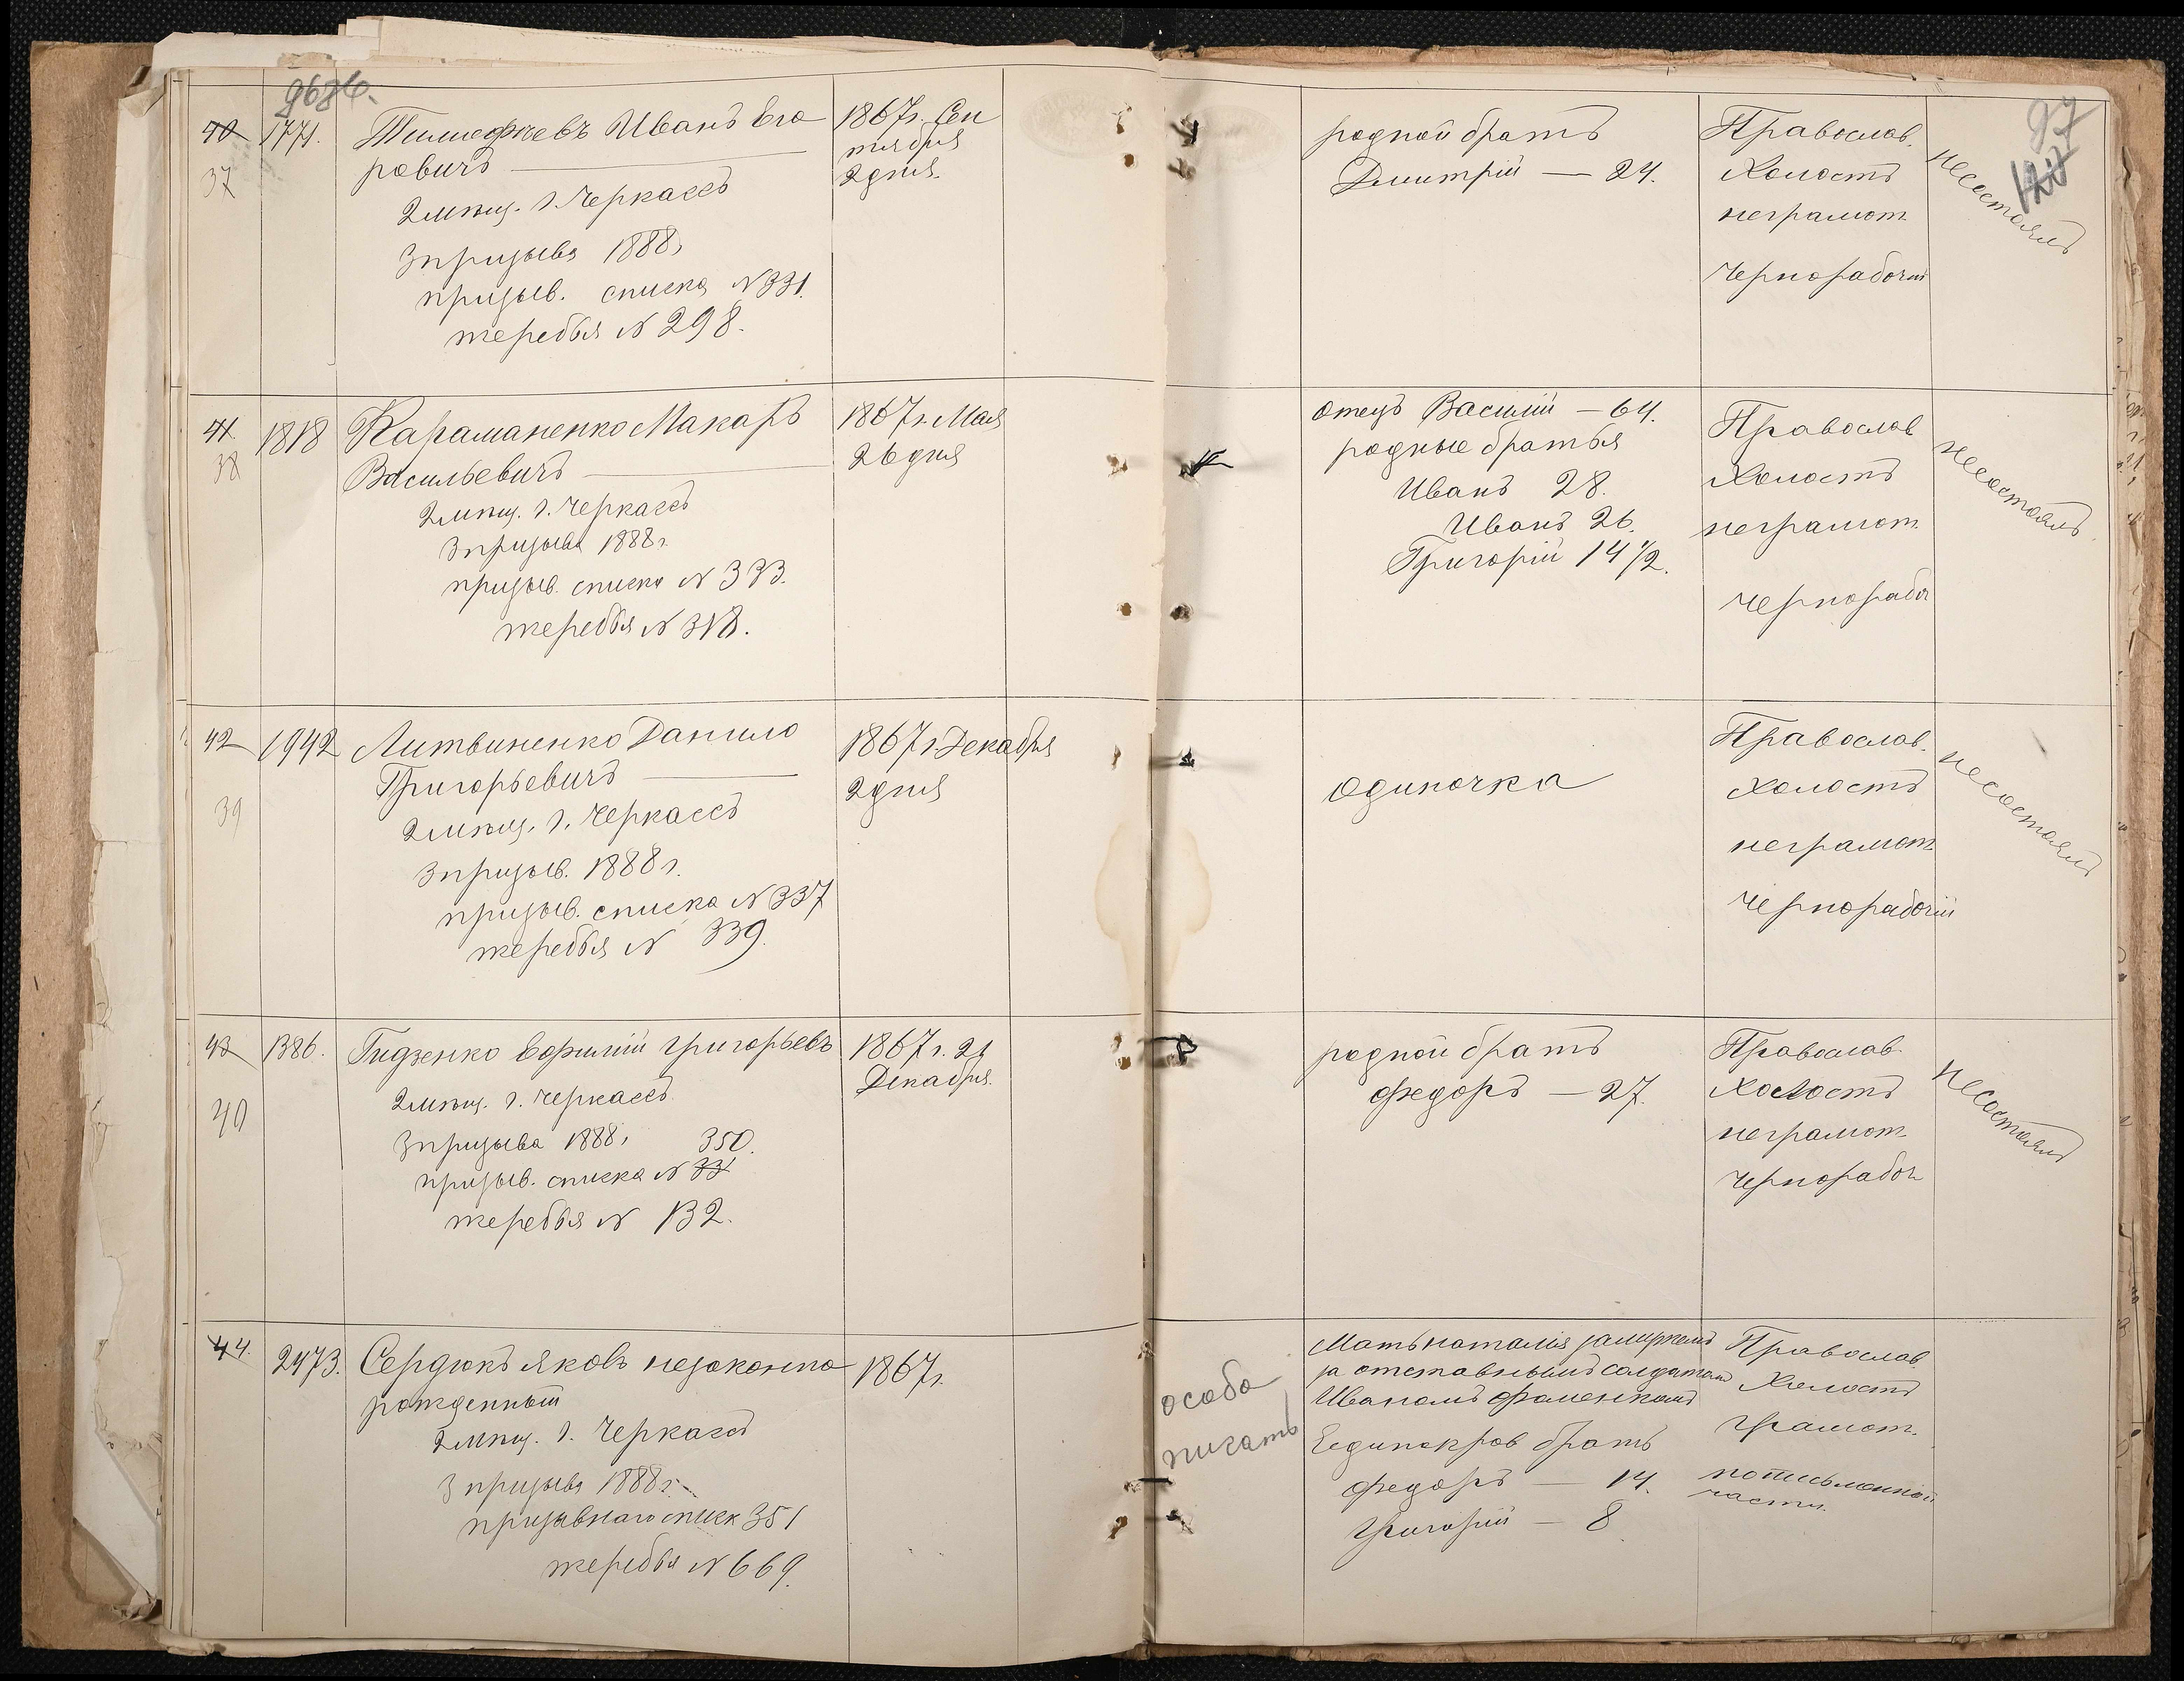 37
1771.
Иванъ Его
ровичъ
2 мѣщ. г. Черкассъ
3 призыва 1888 г
призыв. списка № 331.
жеребья № 298.
1867 г. Сен
тября
2 дня.
родной братъ
Дмитрій — 24.
Православ.
Холостъ
неграмот.
Чернорабочій
несостоялъ
97
41.
38
1818
Караманенко Макаръ
Васильевичъ
2 мѣщ. г. Черкассъ
3 призыва 1888 г.
призыв. списка № 333.
жеребья № 318.
1867 г. Мая
26 дня
отецъ Василій — 64.
родные братья
Иванъ 28.
Иванъ 26.
Григорій 14 1/2.
Православ
Холостъ
неграмот.
чернорабоч
несостоялъ
42
39
1942
Литвиненко Данило
Григорьевичъ
2 мѣщ. г. Черкассъ
3 призыв. 1888 г.
призыв. списка № 337
жеребья № 339.
1867 г. Декабря
2 дня
одиночка
Православ.
холостъ
неграмот.
чернорабочій
несостоялъ
43
40
1386.
Гидзенко Ефимій Григорьевъ
2 мѣщ. г. Черкассъ.
3 призыва 1888 г
350.
призыв. списка №
жеребья № 132.
1867 г. 21
Декабря.
родной братъ
Федоръ — 27.
Православ.
холостъ
неграмот.
чернорабоч
несостоялъ
44.
2473.
Сердюкъ Яковъ незаконно
рожденный
2 мѣщ. г. Черкассъ
3 призыва 1888 г.
призывнаго списк 351
жеребья № 669.
1867 г.
особо
писать
Мать Наталія замужемъ
за отставнымъ солдатомъ
Иваномъ Фоменкомъ
Единокров братъ
Федоръ — 14.
Григорій — 8
Православ.
Холостъ
Грамот.
по письменной
части.